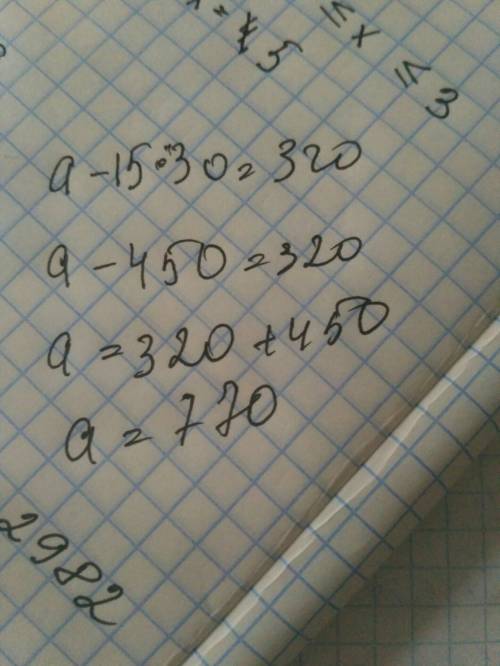 ≤ x ≤ 3
a - 15 · 30 = 320
a - 450 = 320
a = 320 + 450
a = 770
2982